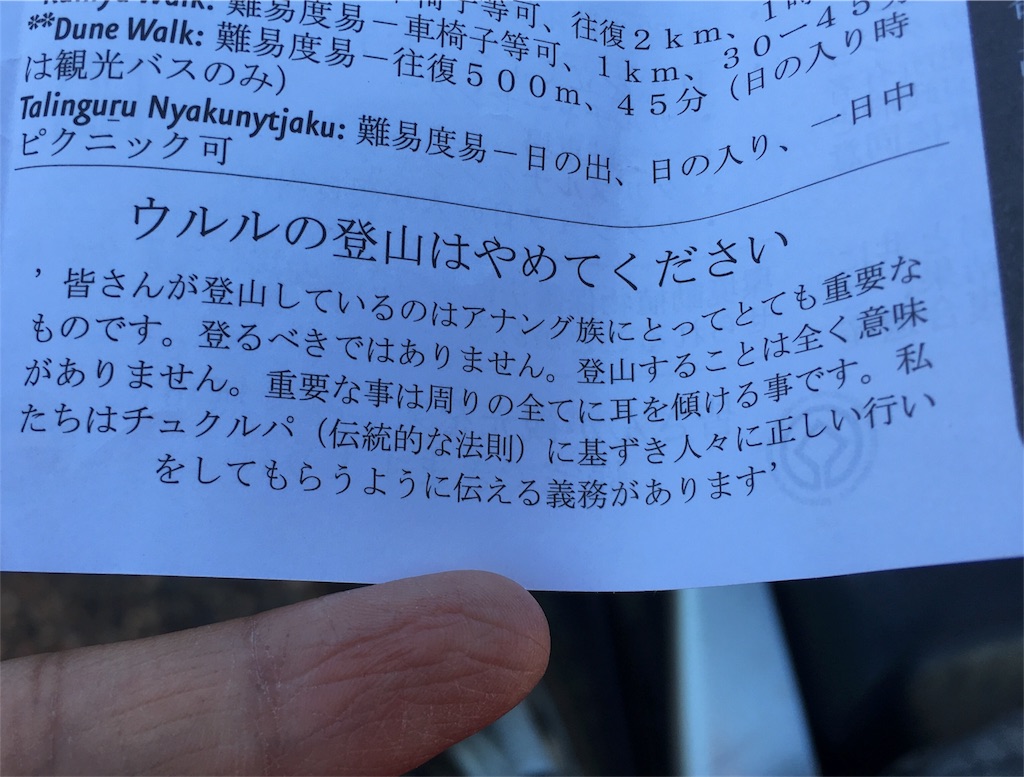 Walk: 難易度易－車椅子等可、往復２ｋｍ、
**Dune Walk: 難易度易－往復５００ｍ、４５分（日の入り時
は観光バスのみ）
Talinguṟu Nyakunytjaku: 難易度易－日の出、日の入り、一日中
ピクニック可
ウルルの登山はやめてください
’皆さんが登山しているのはアナング族にとってとても重要な
ものです。登るべきではありません。登山することは全く意味
がありません。重要な事は周りの全てに耳を傾ける事です。私
たちはチュクルパ（伝統的な法則）に基ずき人々に正しい行い
をしてもらうように伝える義務があります’